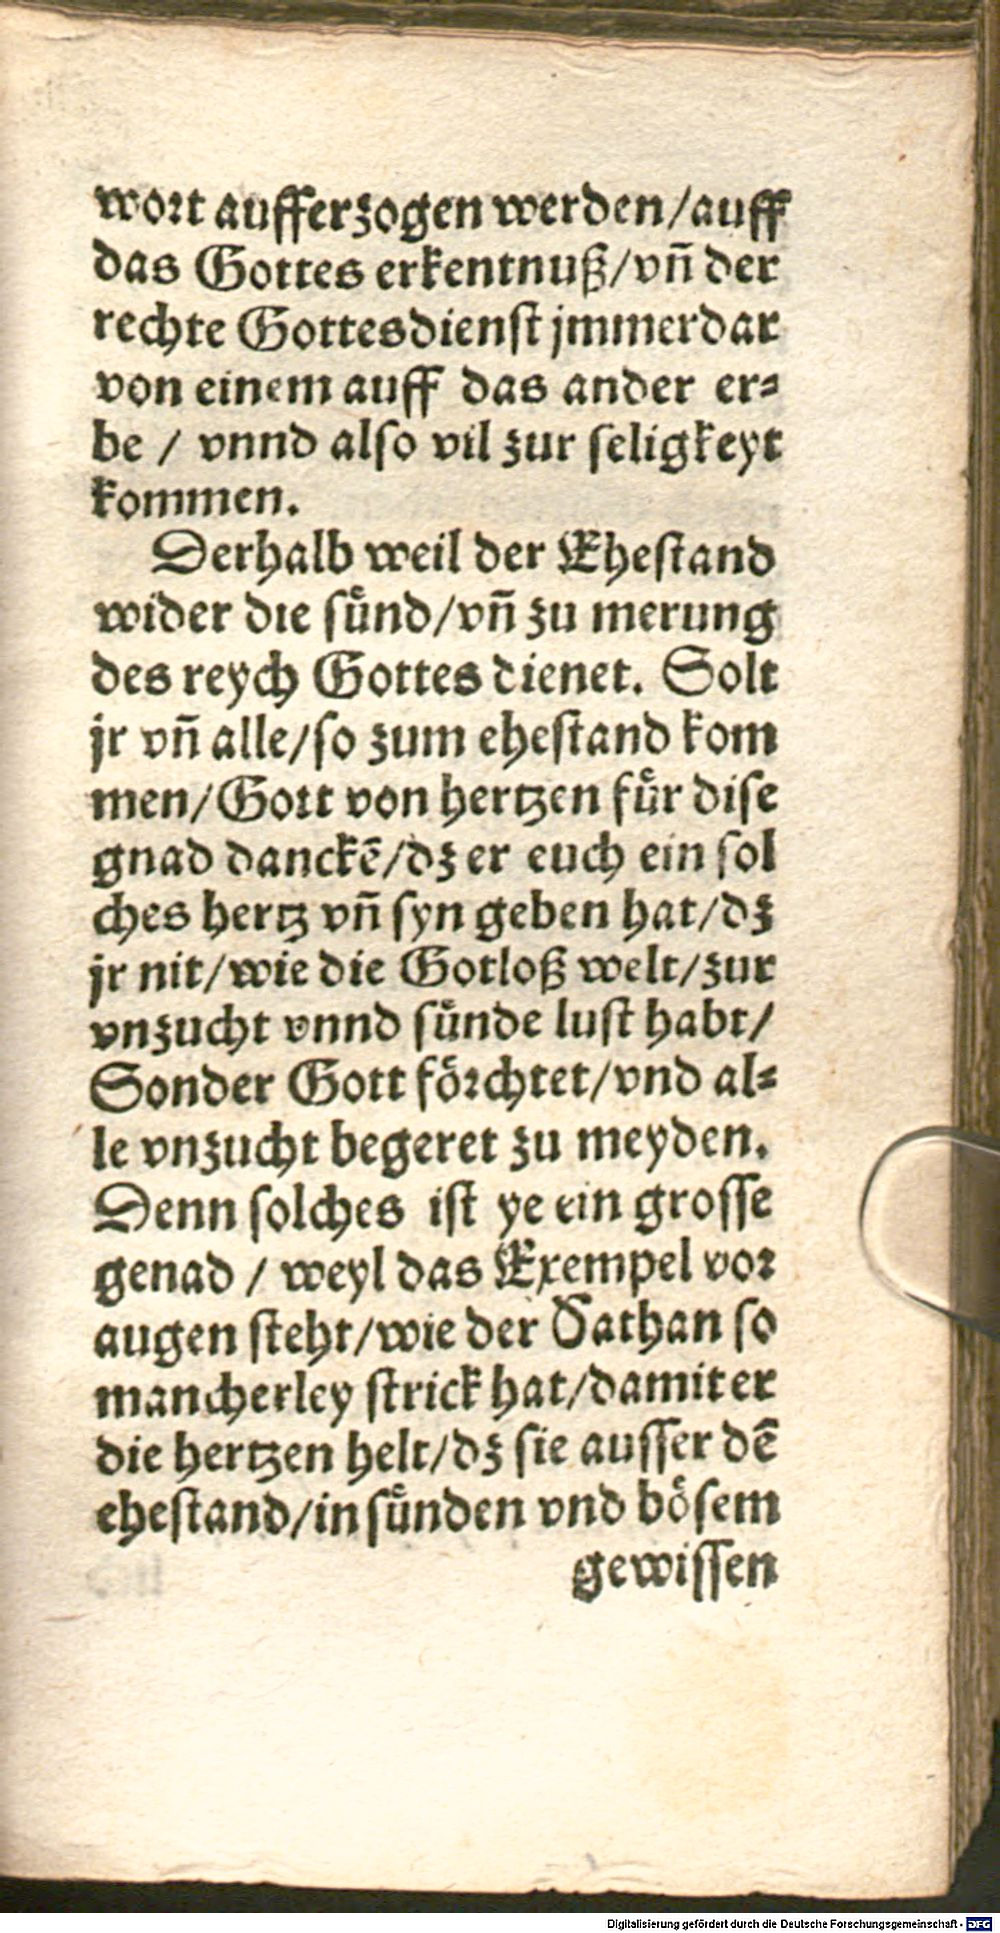 wort aufferzogen werden/auff
das Gottes erkentnuß/vñ der
rechte Gottesdienst jmmerdar
von einem auff das ander er⸗
be / vnnd also vil zur seligkeyt
kommen.
Derhalb weil der Ehestand
wider die sünd/vñ zu merung
des reych Gottes dienet. Solt
jr vñ alle/so zum ehestand kom
men/Gott von hertzen für dise
gnad danckẽ/dz er euch ein sol
ches hertz vñ syn geben hat/dz
jr nit/wie die Gotloß welt/zur
vnzucht vnnd sünde lust habt/
Sonder Gott förchtet/vnd al⸗
le vnzucht begeret zu meyden.
Denn solches ist ye ein grosse
genad / weyl das Exempel vor
augen steht/wie der Sathan so
mancherley strick hat/damit er
die hertzen helt/dz sie ausser dẽ
ehestand/in sünden vnd bösem
gewissen
Digitalisierung gefördert durch die Deutsche Forschungsgemeinschaft - DFG